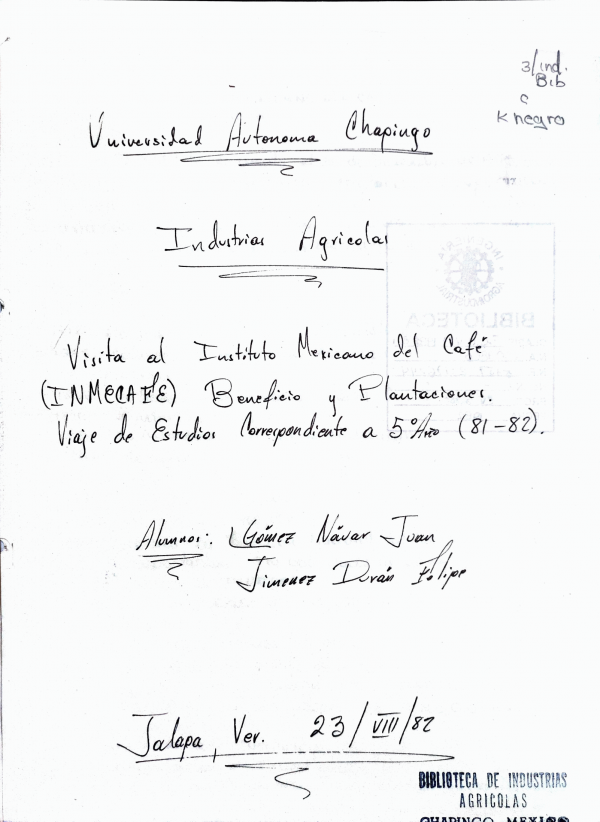 3/ind.
Bib
C
K negro
Universidad Autonoma Chapingo
Industrias Agricolas
BIBLIOTECA
Visita al Instituto Mexicano del Café
(INMECAFE) Beneficio y Plantaciones.
Viaje de Estudios Correspondiente a 5º Año (81-82).
Alumnos: Gómez Návar Juan
Jimenez Durán Felipe
Jalapa, Ver. 23/VIII/82
BIBLIOTECA DE INDUSTRIAS
AGRICOLAS
CHAPINGO, MEXICO